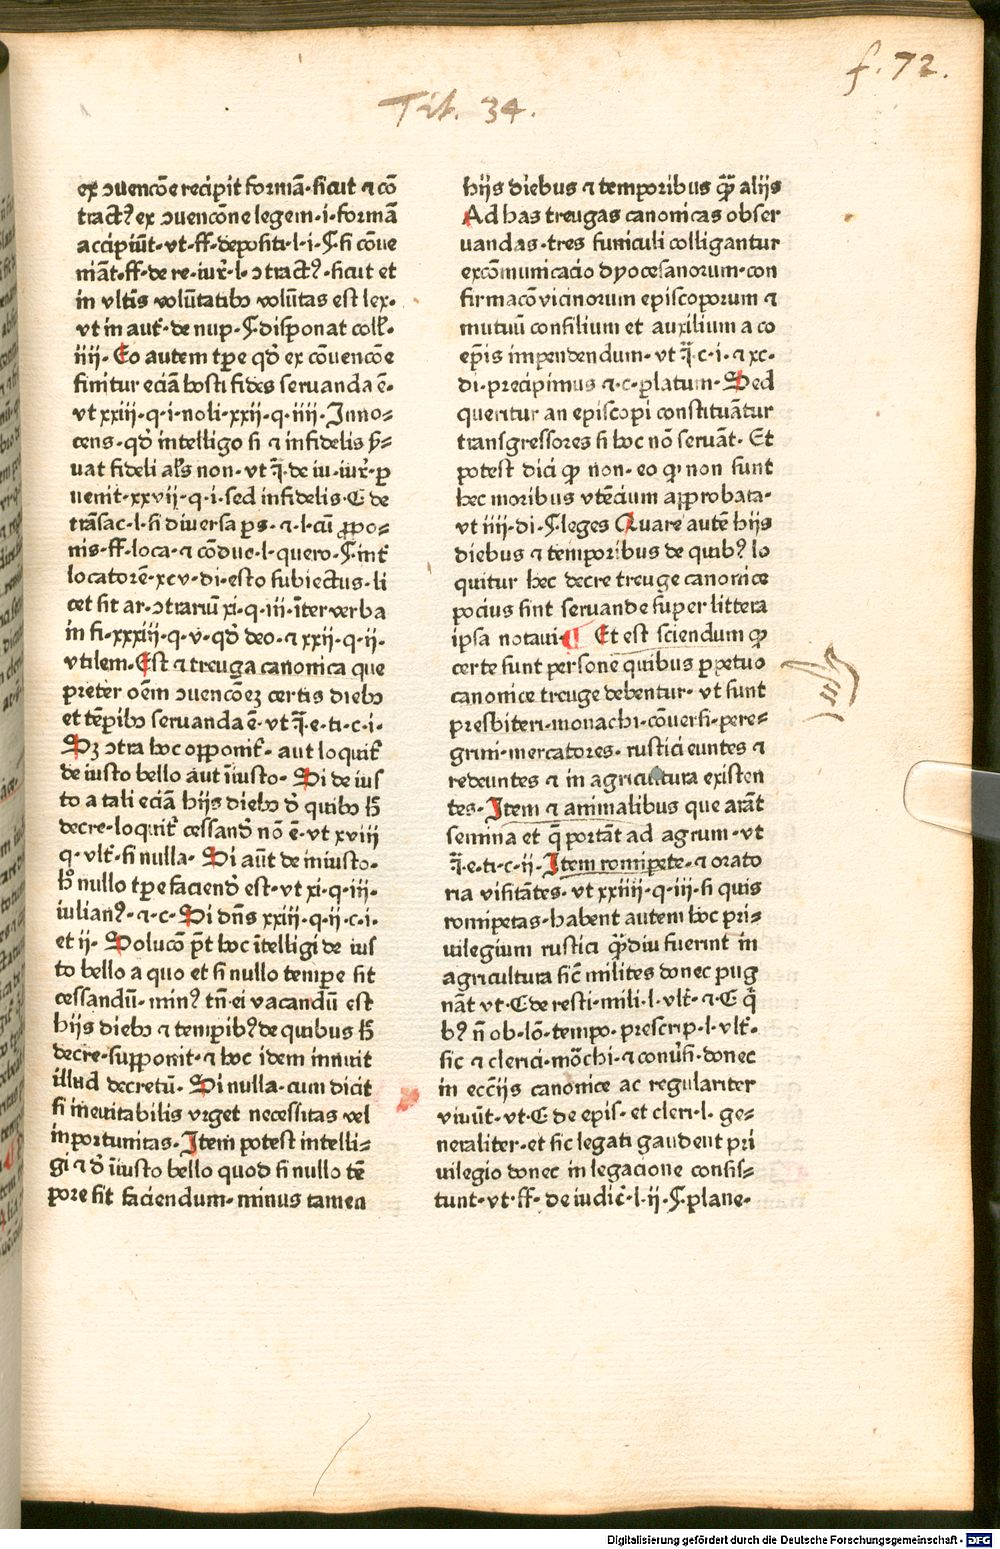 f. 72.
Tit. 34.
ex ɔuencōe recipit formā· sicut ⁊ cō
tract᾽ ex ɔuencōne legem·i·formā
accipiūt·vt·ff·depositi·l·i·§·si cōue
niāt·ff·de re·iur̄·l·ɔtract᾽·sicut et
in vltīs volūtatibꝫ volūtas est lex·
vt in aut̄·de nup·§·disponat coll̄·
iiij· Eo autem tꝑe qd̄ ex cōuencōe
finitur eciā hosti fides seruanda ē·
vt xxiij·q·i·noli·xxij·q·iiij· Inno⸗
cens·qd̄ intelligo si ⁊ infidelis ẜ⸗
uat fideli al̄s non·vt q̄·de iu·iur̄·ꝑ
uenit·xxvij·q·i·sed infidelis·C de
trāsac·l·si diuersa ꝑs·⁊·l·cū ꝓpo⸗
nis·ff·loca·⁊ cōduc·l·quero·§·int̄
locatorē·xcv·di·esto subiectus·li
cet sit ar·ɔtrariū xi·q·iii·īter verba
in fi·xxxiij·q·v·qd̄ deo·⁊ xxij·q·ij·
vtilem· Est ⁊ treuga canonica que
preter oēm ɔuencōeꝫ certis diebꝫ
et tēpibꝫ seruanda ē·vt q̄·e·ti·c·i·
Sꝫ ɔtra hoc opponit̄·aut loquit̄
de iusto bello aut īiusto· Si de ius
to a tali eciā hijs diebꝫ d̄ quibꝫ h̄
decre·loquit̄ cessand̄ nō ē·vt xviij
q·vlt̄·si nulla· Si aūt de iniusto·
h̄ nullo tꝑe faciend̄ est·vt xi·q·iii·
iulian᾽·⁊·c· Si dn̄s xxiij·q·ij·c·i·
et ij· Solucō pt̄ hoc ītelligi de ius
to bello a quo et si nullo tempe sit
cessandū·min᾽ tn̄·ei vacandū est
hijs diebꝫ ⁊ tempib᾽ de quibus h̄
decre·supponit·⁊ hoc idem innuit
illud decretū· Si nulla·cum dicit
si ineuitabilis vrget necessitas vel
inportunitas· Item potest intelli⸗
gi ⁊ d̄ īiusto bello quod si nullo tē
pore sit faciendum·minus tamen
hijs diebus ⁊ temporibus q̄ȝ alijs
Ad has treugas canonicas obser
uandas·tres funiculi colligantur
excōmunicacio dyocesanorum·con
firmacō vicinorum episcoporum ⁊
mutuū consilium et auxilium a co
ep̄is impendendum·vt q̄·c·i·⁊ xc·
di·precipimus ⁊·c·platum· Sed
queritur an episcopi constituātur
transgressores si hoc nō seruāt· Et
potest dici ꝙ non·eo ꝙ non sunt
hec moribus vtēcium approbata·
vt iiij·di·§·leges Quare autē hijs
diebus ⁊ temporibus de quib᾽ lo
quitur hec decre treuge canonice
pocius sint seruande super littera
ipsa notaui· ¶ Et est sciendum ꝙ
certe sunt persone quibus ꝑpetuo
canonice treuge debentur·vt sunt
presbiteri·monachi·cōuersi·pere⸗
grini·mercatores·rustici euntes ⁊
redeuntes ⁊ in agricultura existen
tes· Item ⁊ animalibus que arāt
semina et q̄ portāt ad agrum·vt
q̄·e·ti·c·ij· Item romipete·⁊ orato
ria visitātes·vt xxiiij·q·iii·si quis
romipetas·habent autem hoc pri⸗
uilegium rustici q̄ȝdiu fuerint in
agricultura sic̄ milites donec pug
nāt vt·C de resti·mili·l·vlt̄·⁊·C q̄
b᾽ n̄ ob·lō·tempo·prescrip·l·vlt̄·
sic ⁊ clerici·mōchi·⁊ conuersi·donec
in ecc̄ijs canonice ac regulariter
viuūt·vt·C de epis·et cleri·l·ge⸗
neraliter·et sic legati gaudent pri
uilegio donec in legacione consis⸗
tunt·vt·ff·de iudic̄·l·ij·§·plane·
Digitalisierung gefördert durch die Deutsche Forschungsgemeinschaft - DFG